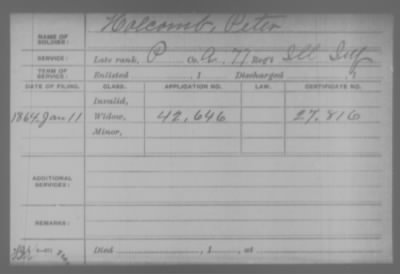 Holcomb, Peter
NAME OF SOLDIER:
SERVICE: Late rank, P Co. A, 77 Reg't Ill Inf
TERM OF SERVICE: Enlisted , 1 Discharged , 1
DATE OF FILING. CLASS. APPLICATION NO. LAW. CERTIFICATE NO.
Invalid,
1864 Jan 11 Widow, 42,646 27,816
Minor,
ADDITIONAL SERVICES:
REMARKS:
Died , 1 , at